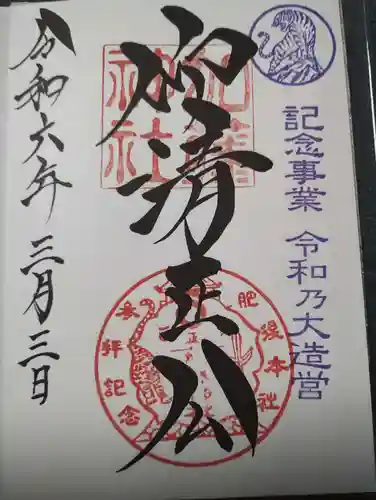 記念事業 令和乃大造営
加藤
神社
仰清正公
肥後本社
参拝記念
令和六年三月三日